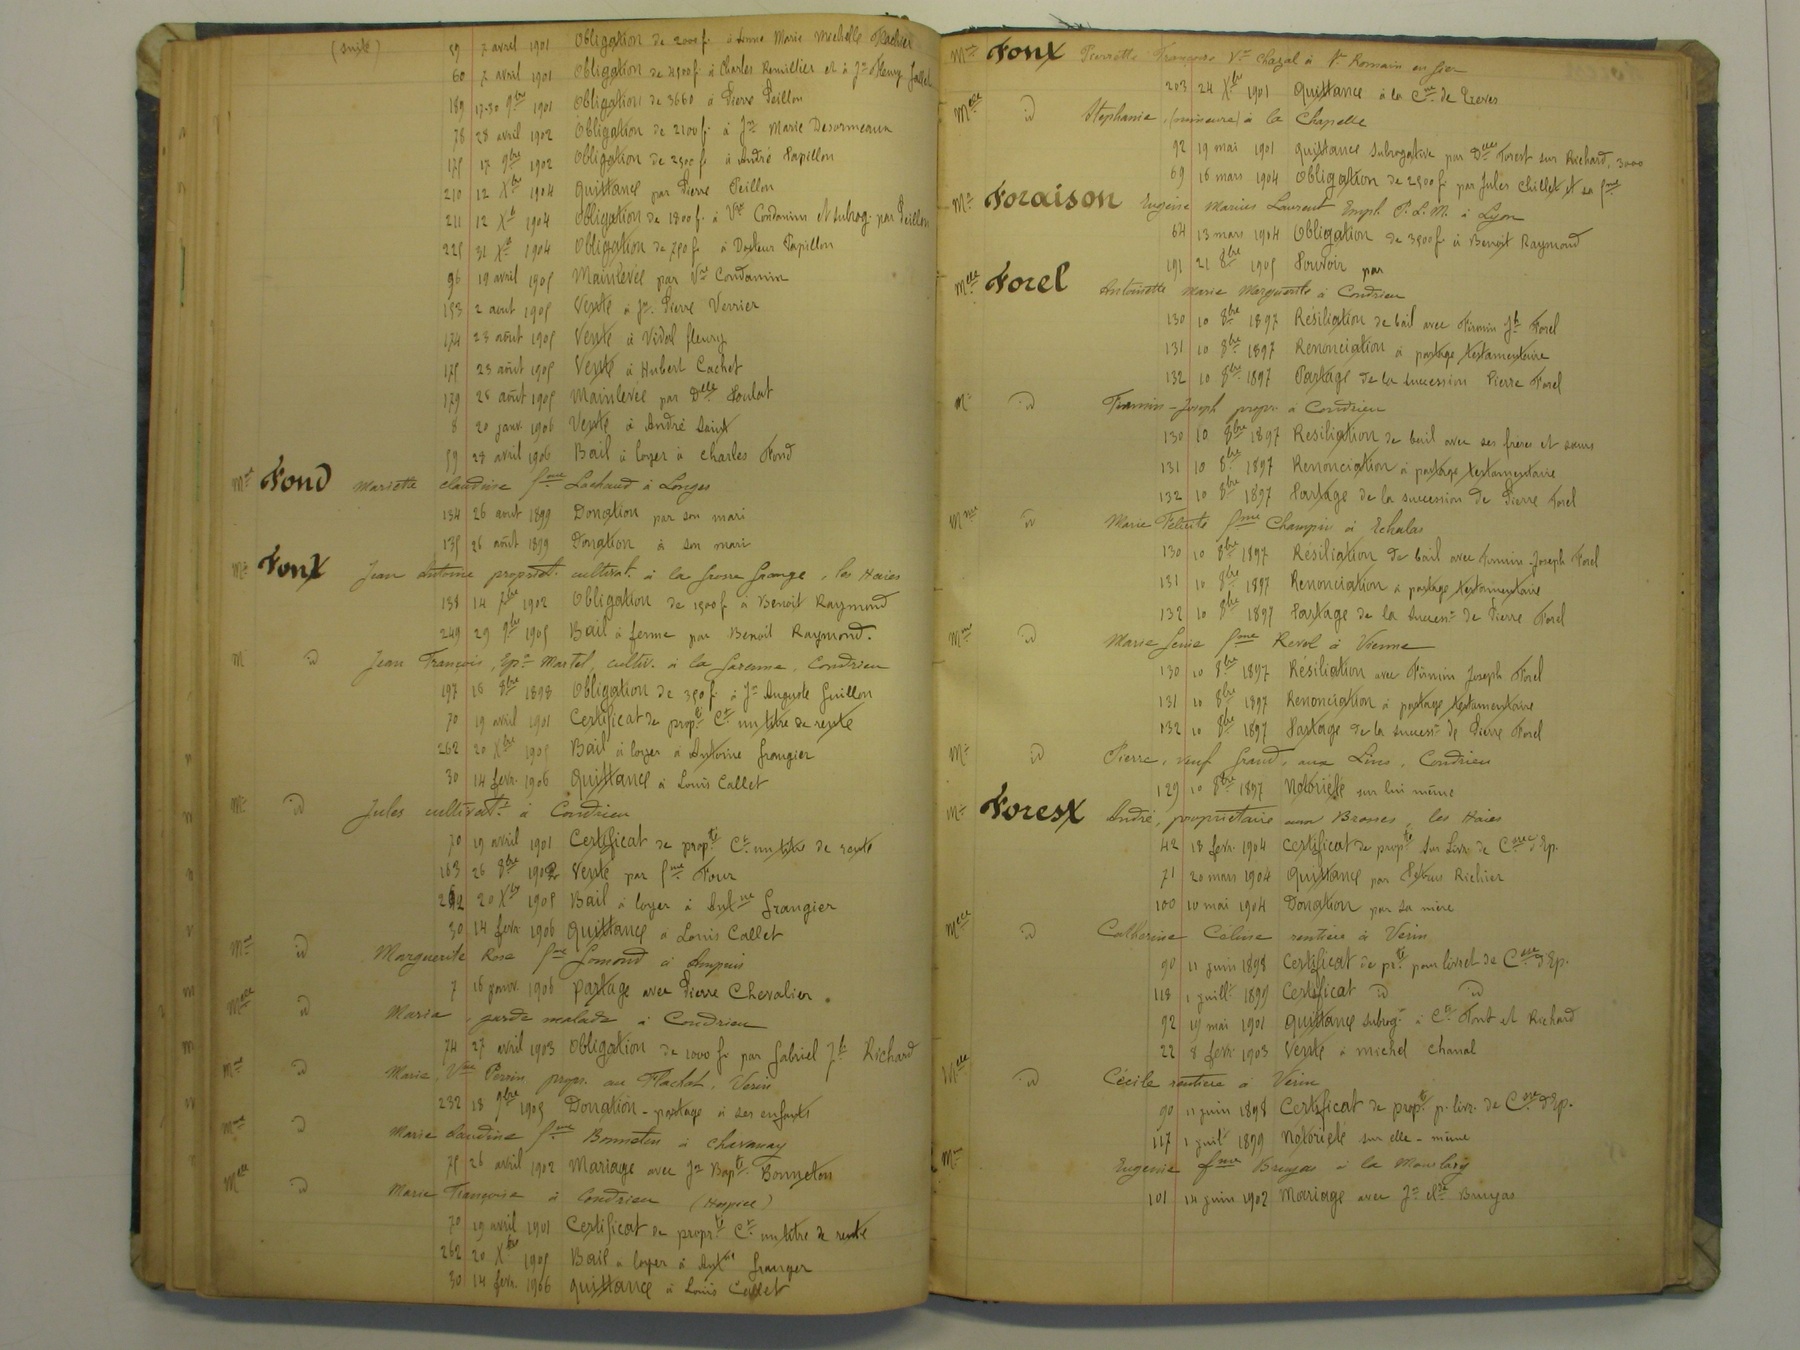 (suite) 59 7 avril 1901 Obligation de 2000f. à Marie Michelle
60 7 avril 1901 Obligation de 2500f. à Charles Remillier et à Jn Fleury
189 17-30 9bre 1901 Obligation de 3660 à Pierre Peillon
78 28 avril 1902 Obligation de 2100f. à Jne Marie Desormeaux
175 17 9bre 1902 Obligation de 2500f. à André Papillon
210 12 Xbre 1904 Quittance par Pierre Peillon
211 12 Xb 1904 Obligation de 1800f. à Vve Condamin et subrog. par Peillon
225 31 Xb 1904 Obligation de 750f. à Docteur Papillon
96 19 avril 1905 Mainlevée par Vve Condamin
153 2 aout 1905 Vente à Jn Pierre Verrier
174 23 août 1905 Vente à Vidal fleury
175 23 août 1905 Vente à Hubert Cachet
179 28 août 1905 Mainlevée par Delle Poulat
8 20 janv. 1906 Vente à André Saint
59 28 avril 1906 Bail à loyer à Charles Fond
Mme Fond Mariette Claudine fme Lachaud à Longes
134 26 aout 1899 Donation par son mari
135 26 août 1899 Donation à son mari
Mr Font Jean Antoine propriét. cultivat. à la Grosse Grange, les Haies
138 14 7bre 1902 Obligation de 1500f. à Benoit Raymond
249 29 9bre 1905 Bail à ferme par Benoit Raymond.
M id Jean François, Epx Martel, cultiv. à la Garenne, Condrieu
197 18 8bre 1898 Obligation de 350f. à Jn Auguste Guillon
70 19 avril 1901 Certificat de propté Ct un titre de rente
262 20 Xbre 1905 Bail à loyer à Antoine Grangier
30 14 fevr. 1906 Quittance à Louis Callet
Mr id Jules cultivatr à Condrieu
70 19 avril 1901 Certificat de propté Ct un titre de rente
163 26 8bre 1902 Vente par fme Four
262 20 Xbre 1905 Bail à loyer à Antne Grangier
30 14 fevr. 1906 Quittance à Louis Callet
Mme id Marguerite Rose fme Gomond à Ampuis
7 16 janv. 1906 partage avec Pierre Chevalier.
Melle id Maria, garde malade à Condrieu
74 27 avril 1903 Obligation de 1000 fr par Gabriel Jh Richard
Mme id Marie, Vve Perrin propr. au Flachat, Verin
232 18 9bre 1905 Donation-partage à ses enfants
Mme id Marie Claudine fme Bonneton à Chavanay
75 26 avril 1902 Mariage avec Jn Bapte Bonneton
Melle id Marie Françoise à Condrieu (Hospice)
70 19 avril 1901 Certificat de proprté Ct un titre de rente
262 20 Xbre 1905 Bail à loyer à Antne Granger
30 14 fevr. 1906 quittance à Louis Callet
Mme Font Pierrette Françoise Vve Chazal à St Romain en Gier
203 24 Xbre 1901 Quittance à la Cne de Trèves
Melle id Stephanie, (mineure) à la Chapelle
92 19 mai 1901 quittance subrogative par Delle Forest sur Richard, 3000
69 16 mars 1904 Obligation de 2500f. par Jules Chillet et sa fme
Mr Foraison Eugène Marius Laurent Empl. P.L.M. à Lyon
64 13 mars 1904 Obligation de 3500f. à Benoît Raymond
191 21 8bre 1905 Pouvoir par
Melle Forel Antoinette Marie Marguerite à Condrieu
130 10 8bre 1897 Résiliation de bail avec Firmin Jh Forel
131 10 8bre 1897 Renonciation à partage testamentaire
132 10 8bre 1897 Partage de la succession Pierre Forel
Mr id Firmin-Joseph propr. à Condrieu
130 10 8bre 1897 Résiliation de bail avec ses frères et sœurs
131 10 8bre 1897 Renonciation à partage testamentaire
132 10 8bre 1897 Partage de la succession de Pierre Forel
Mme id Marie Félicité fme Champin à Echalas
130 10 8bre 1897 Résiliation de bail avec Firmin-Joseph Forel
131 10 8bre 1897 Renonciation à partage testamentaire
132 10 8bre 1897 Partage de la succesn de Pierre Forel
Mme id Marie Génie fme Revol à Vienne
130 10 8bre 1897 Résiliation avec Firmin Joseph Forel
131 10 8bre 1897 Renonciation à partage testamentaire
132 10 8bre 1897 Partage de la succesn de Pierre Forel
Mr id Pierre, veuf Grand, aux Lins, Condrieu
129 10 8bre 1897 Notoriété sur lui même
Mr Forest André, propriétaire aux Brosses, les Haies
42 18 fevr. 1904 Certificat de propté sur Livr. de Caisse d'Ep.
71 20 mars 1904 Quittance par Petrus Richier
100 10 mai 1904 Donation par sa mère
Melle id Catherine Céline rentière à Vérin
90 11 juin 1898 Certificat de prté pour livret de Csse d'Ep.
118 1 juillt 1899 Certificat id id
92 19 mai 1901 Quittance subrogn à Ct Font et Richard
22 8 fevr 1903 Vente à Michel Chanal
Melle id Cécile rentière à Vérin
90 11 juin 1898 Certificat de propté p. livr. de Csse d'Ep.
117 1 juilt 1899 Notoriété sur elle-même
Mme Eugénie fme Bruyas à la
101 14 juin 1902 Mariage avec Jn Cl. Bruyas